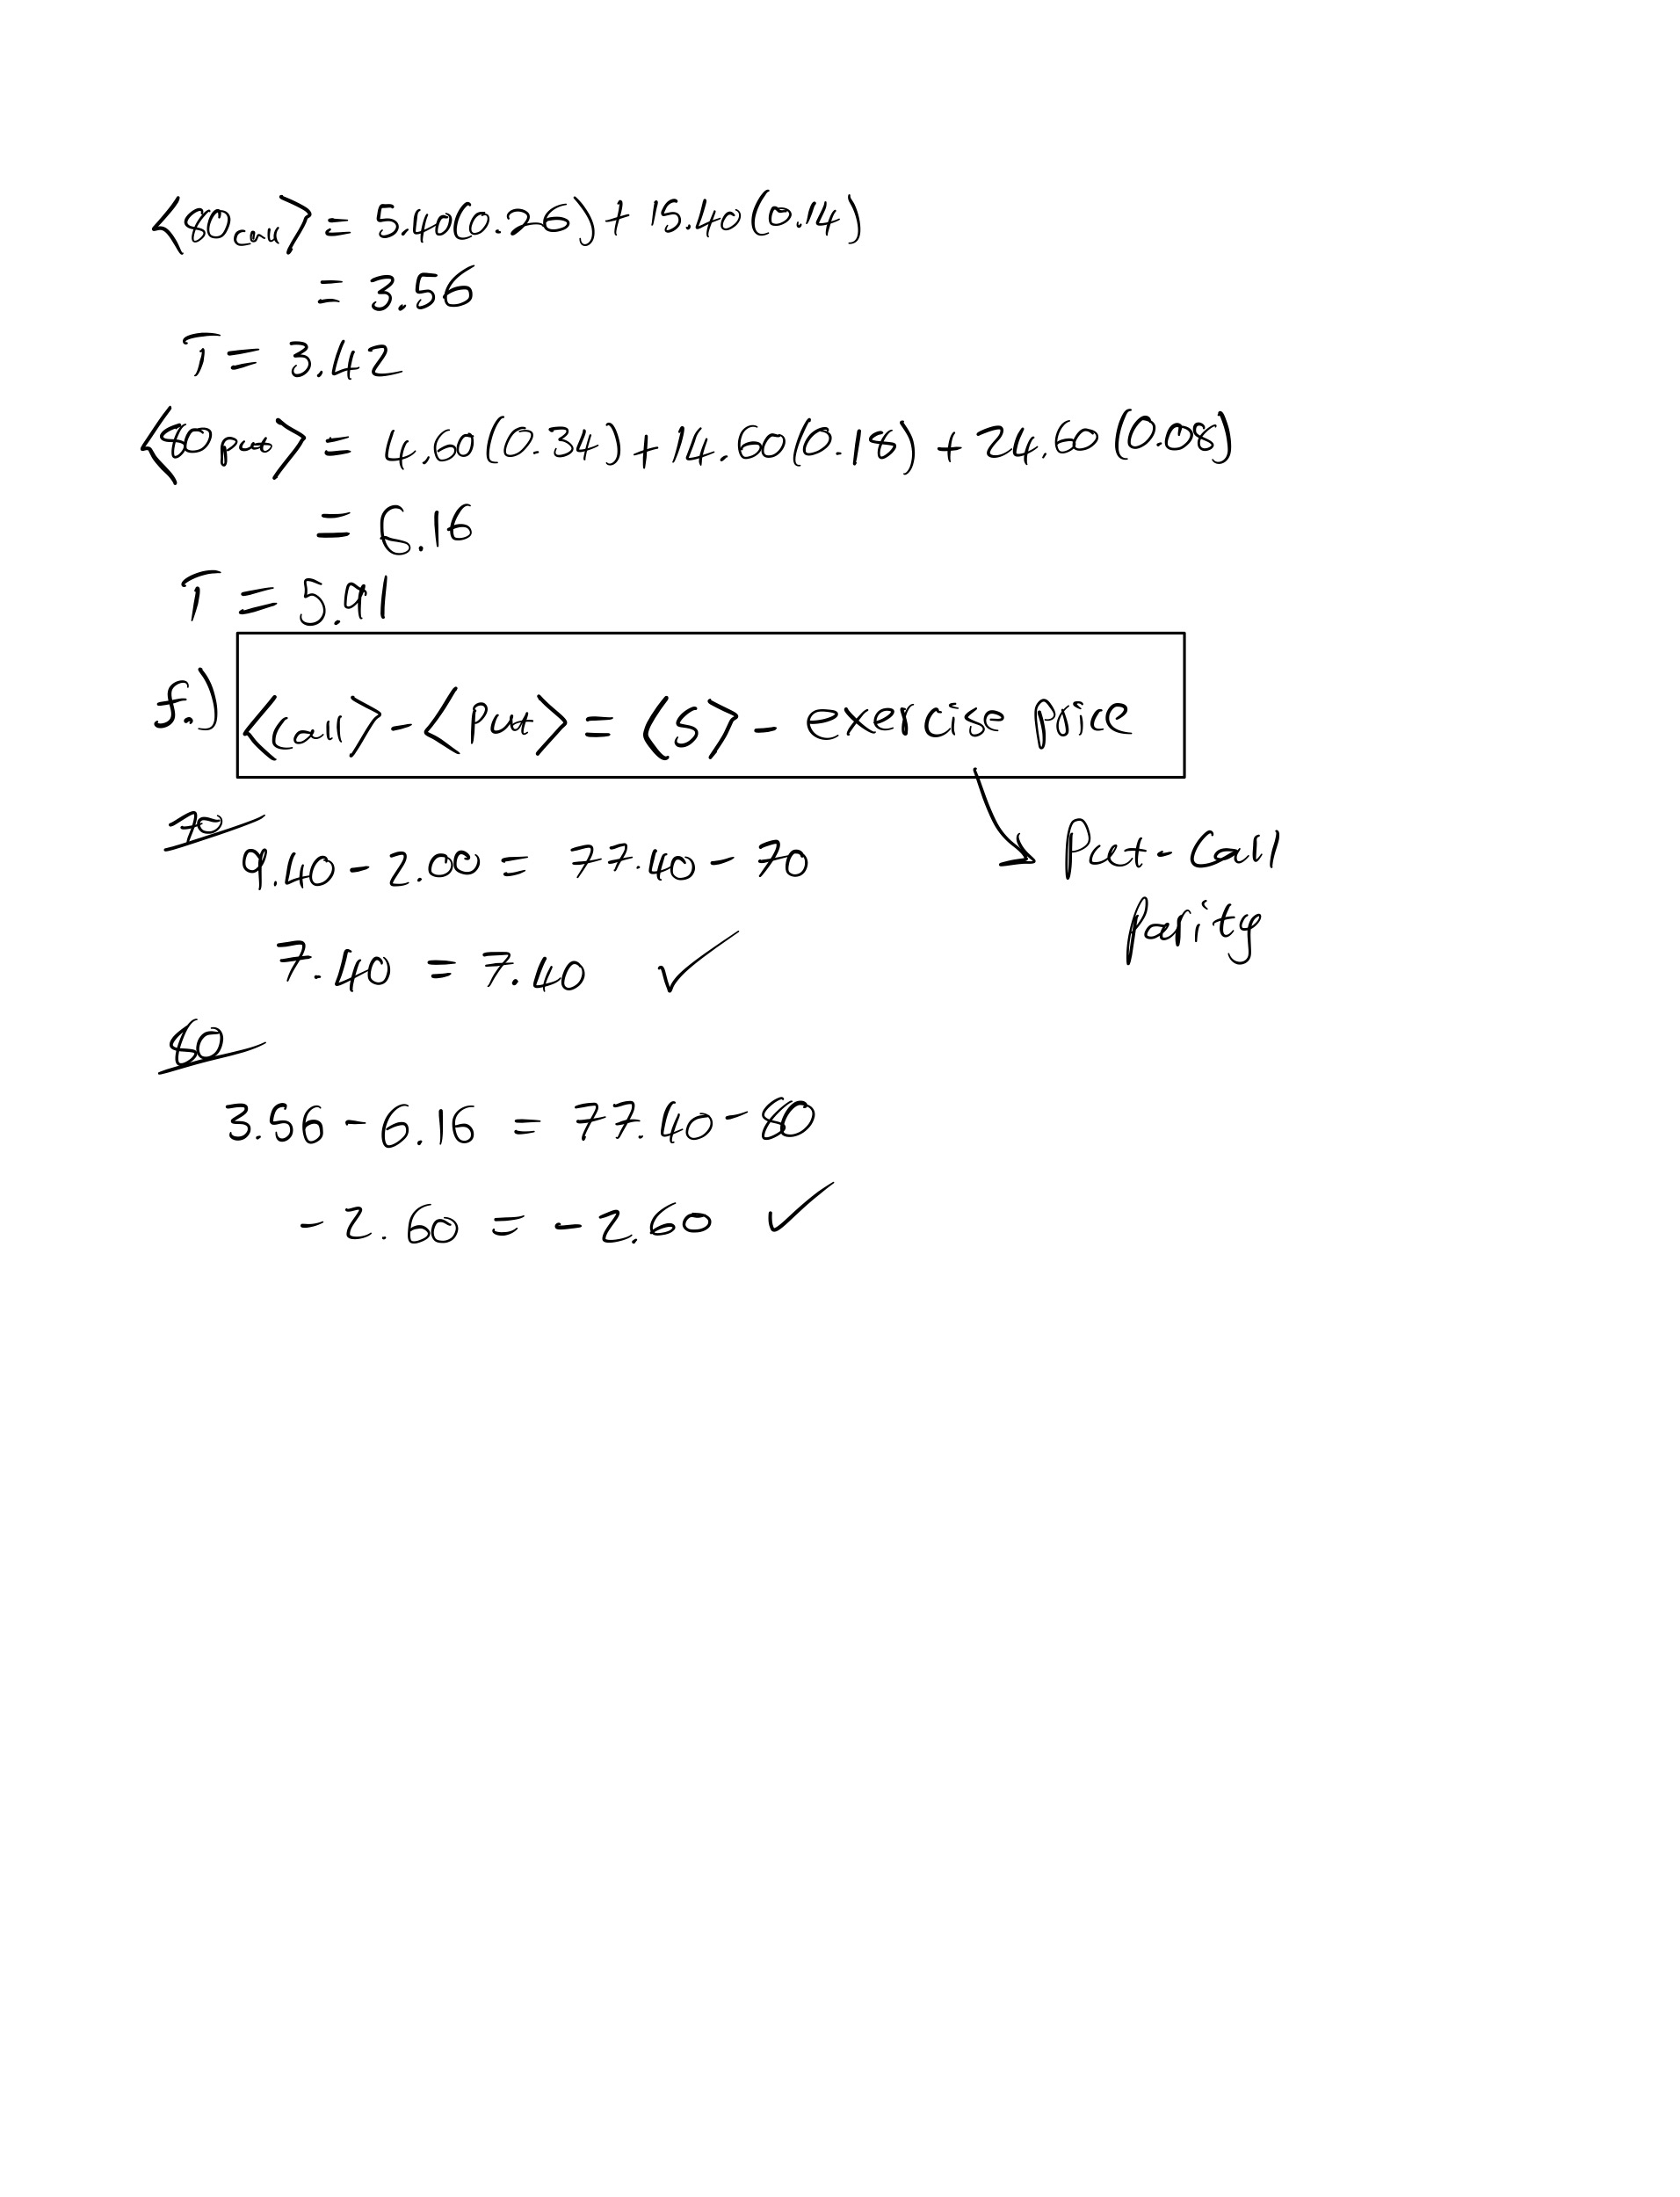 ⟨80 call⟩ = 5.40(0.26) + 15.40(0.14)
= 3.56
T = 3.42
⟨80 put⟩ = 4.60(0.34) + 14.60(0.18) + 24.60(0.08)
= 6.16
T = 5.91
f.) ⟨Call⟩ - ⟨put⟩ = ⟨S⟩ - exercise price
70
9.40 - 2.00 = 77.40 - 70
Put-Call
parity
7.40 = 7.40 ✓
80
3.56 - 6.16 = 77.40 - 80
-2.60 = -2.60 ✓